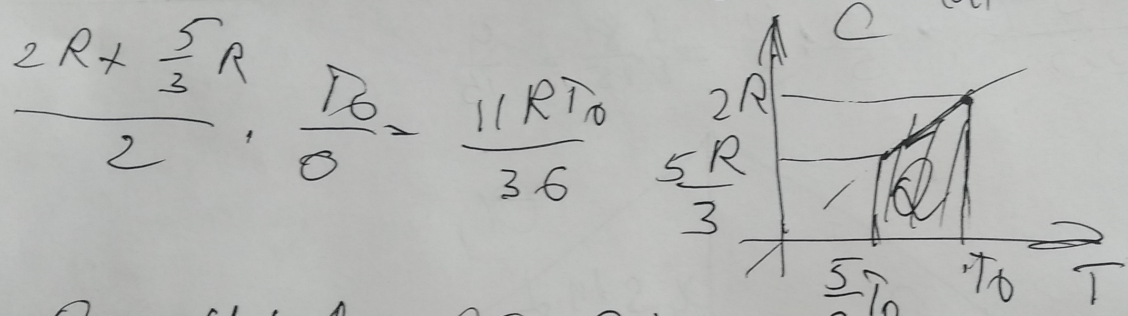 (2R + 5/3 R)/2 · T₀/6 = 11RT₀/36
C
2R
5R/3
Q
T₀ T